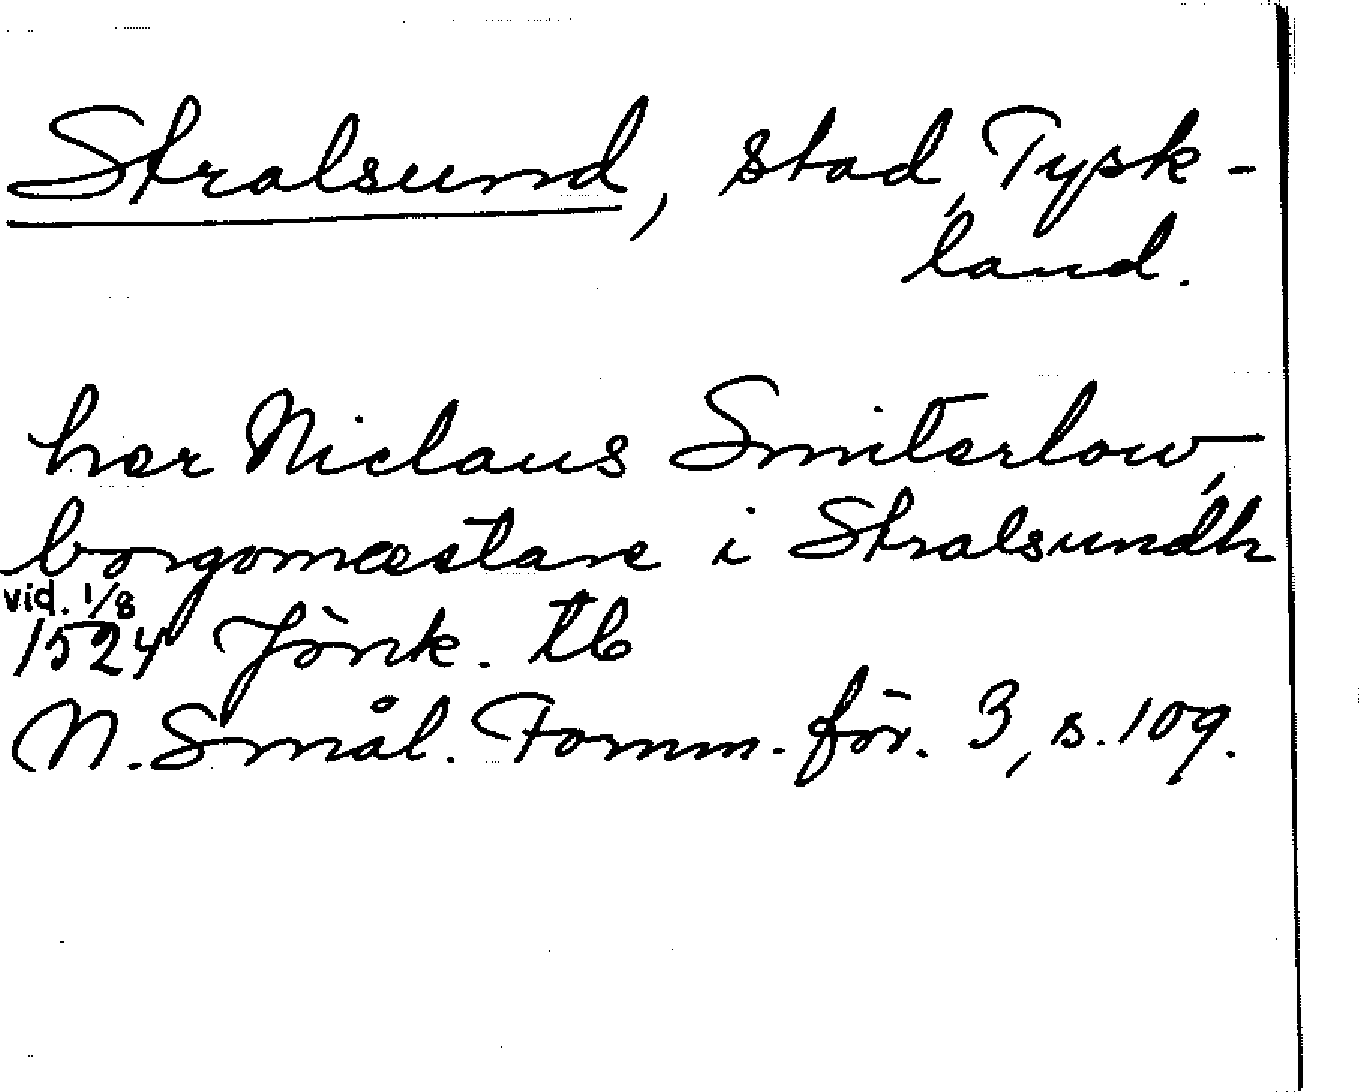 Stralsund, stad, Tysk-
land.
her Niclaus Smiterlow,
borgomæstare i Stralsundh
vid. 1/8
1524 Jönk. tb
N. Smål. Fornm. för. 3, s. 109.